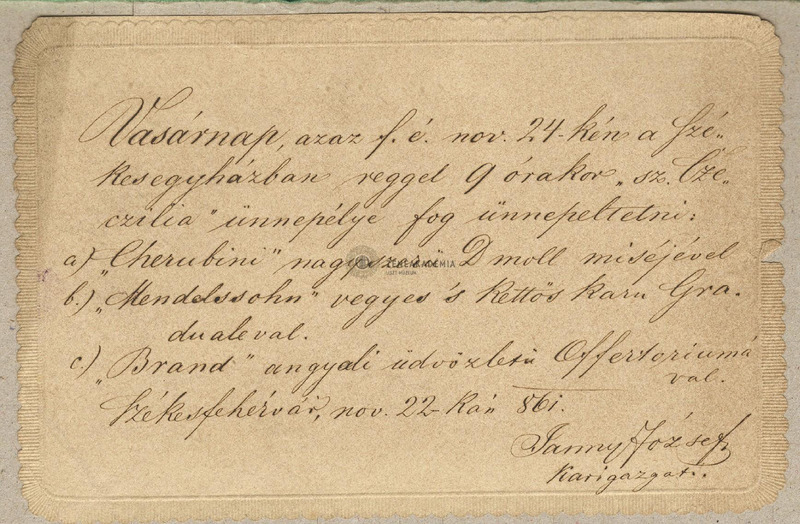 Vasárnap, azaz f. é. nov. 24-kén a Szé„
kesegyházban reggel 9 órakor „sz. Cze„
czilia" ünnepélye fog ünnepeltetni:
a.) „Cherubini" D moll miséjével
b.) „Mendelssohn" vegyes 's kettős karu Gra.
dualeval.
c.) „Brand" angyali üdvözletü Offertoriumá
val.
Székesfehérvár, nov. 22-kán 861.
Janny József
karigazgat..
ZENEAKADÉMIA